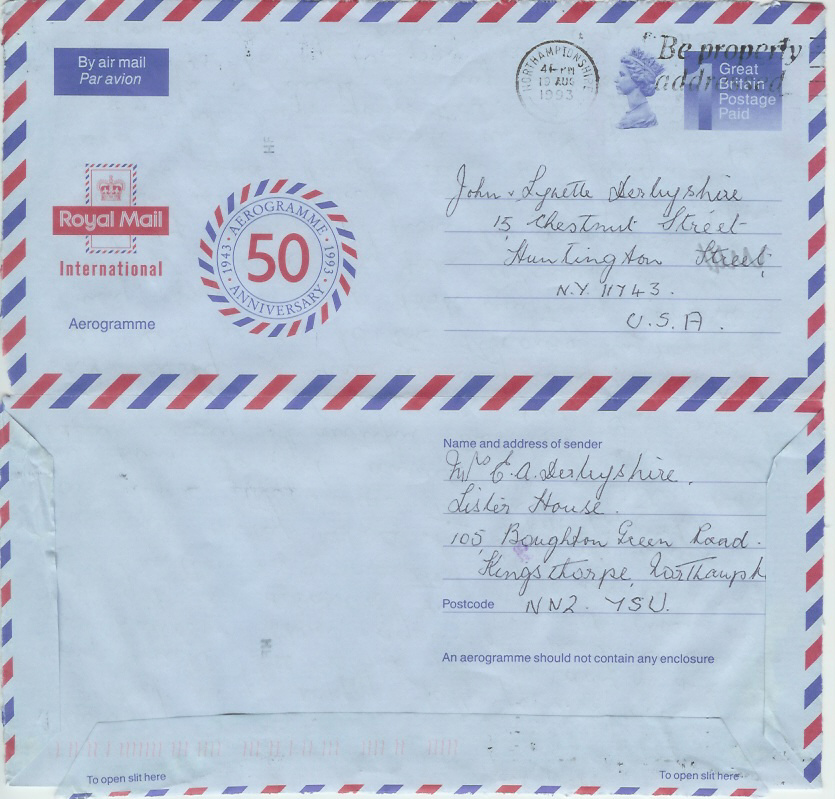 By air mail
Par avion
NORTHAMPTONSHIRE
4-PM
19 AUG
1993
Be properly
addressed
1
Great
Britain
Postage
Paid
Royal Mail
International
Aerogramme
AEROGRAMME
1943 · 50 · 1993
ANNIVERSARY
John & Lynette Derbyshire
15 Chestnut Street
Huntington
N.Y. 11743.
U.S.A.
Name and address of sender
Mrs E.A. Derbyshire.
Lister House.
105 Boughton Green Road.
Kingsthorpe, Northampt
Postcode NN2. 7SU.
An aerogramme should not contain any enclosure
To open slit here
To open slit here